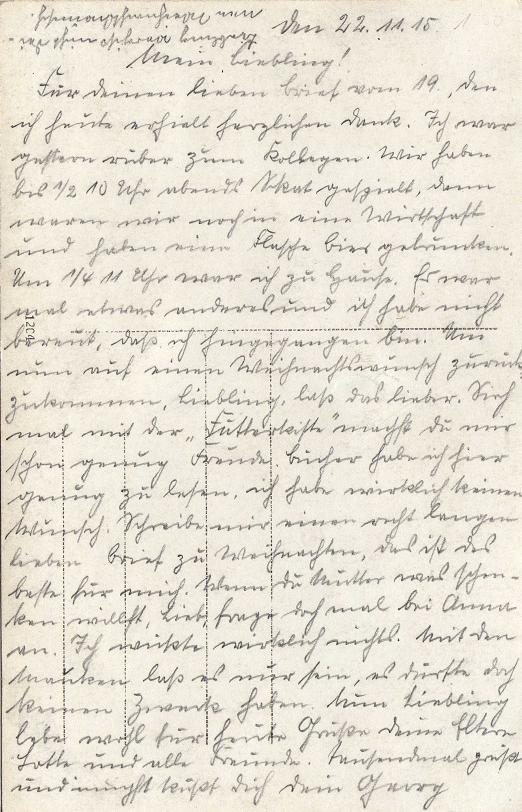 Den 22.11.15.
Mein Liebling!
Für deinen lieben Brief vom 19., den
ich heute erhielt herzlichen Dank. Ich war
gestern rüber zum Kollegen. Wir haben
bis 1/2 10 Uhr abends Skat gespielt, dann
waren wir noch in eine Wirtschaft
und haben eine Flasche bier getrunken.
Um 1/4 11 Uhr war ich zu Hause. Es war
mal etwas anderes und ich habe nicht
bereut, daß ich hingegangen bin. Um
nun auf einen Weihnachtswunsch zurück
zukommen, Liebling, laß das lieber. Sieh
mal mit der „Futterkiste" machst du mir
schon genug Freude. Bücher habe ich hier
genug zu lesen, ich habe wirklich keinen
Wunsch. Schreibe mir einen recht langen
lieben Brief zu Weihnachten, das ist das
beste für mich. Wenn du Mutter was schen-
ken willst, Lieb, frage doch mal bei Anna
an. Ich wüßte wirklich nichts. Mit den
laß es nur sein, es dürfte doch
keinen Zweck haben. Nun Liebling
lebe wohl für heute Grüße deine Eltern
Lotte und alle Freunde. Tausendmal grüßt
und küßt dich dein Georg